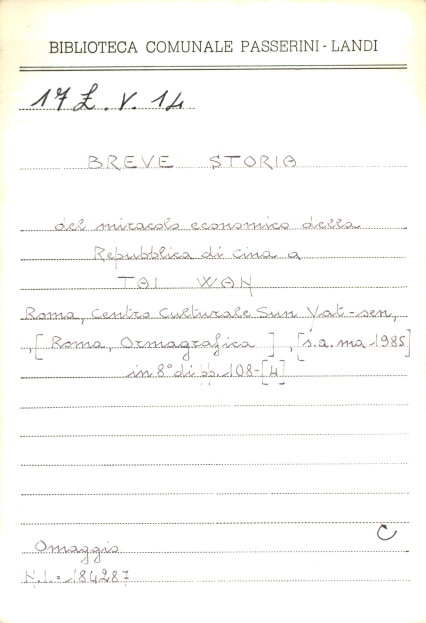 BIBLIOTECA COMUNALE PASSERINI - LANDI
17 Z. V. 14
BREVE STORIA
del miracolo economico della
Repubblica di Cina a
TAI WAN
Roma, Centro Culturale Sun Yat-sen,
,[Roma, Ormagrafica], [s.a. ma 1985]
in 8° di pp. 108-[4]
C
Omaggio
N.I. = 184287